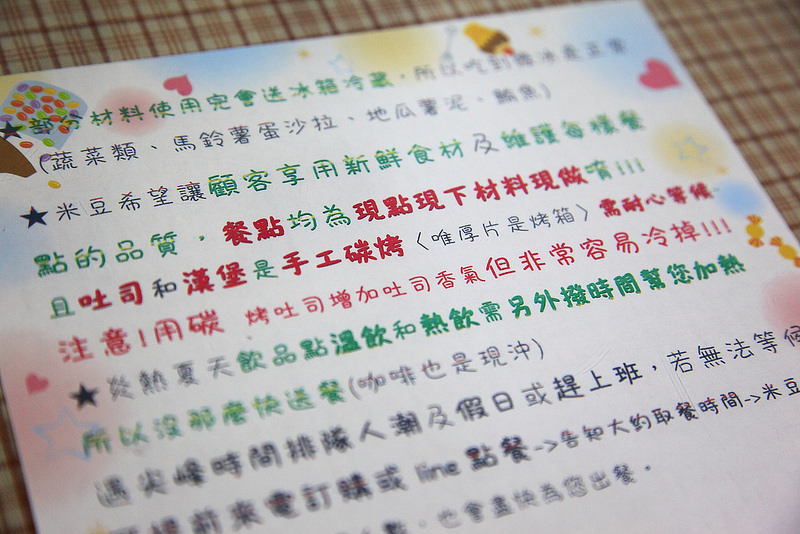 ★部分材料使用完會送冰箱冷藏，所以吃到微冰是正常
(蔬菜類、馬鈴薯蛋沙拉、地瓜薯泥、鮪魚)
★米豆希望讓顧客享用新鮮食材及維護每樣餐
點的品質，餐點均為現點現下材料現做唷!!!
且吐司和漢堡是手工碳烤〈唯厚片是烤箱〉需耐心等候~
注意!用碳 烤吐司增加吐司香氣但非常容易冷掉!!!
★炎熱夏天飲品點溫飲和熱飲需另外撥時間幫您加熱
所以沒那麼快送餐(咖啡也是現沖)
遇尖峰時間排隊人潮及假日或趕上班，若無法等候
前來電訂購或 line 點餐->告知大約取餐時間->米豆
，也會盡快為您出餐。